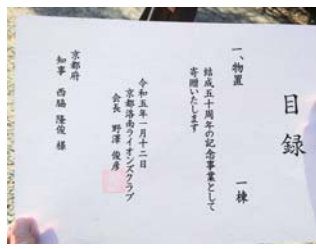 目録
一、物置　一棟
結成五十周年の記念事業として
寄贈いたします
令和五年一月十二日
京都洛南ライオンズクラブ
会長　野澤　俊彦
京都府
知事　西脇　隆俊　様